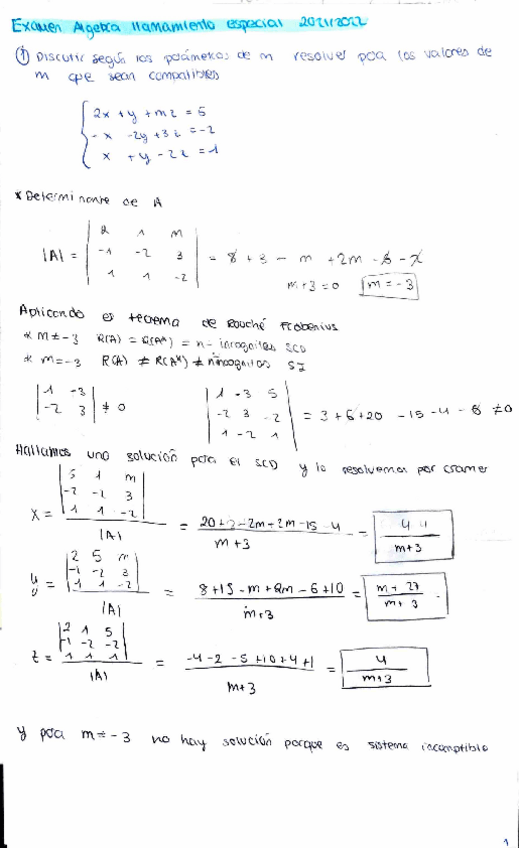 Examen Algebra llamamiento especial 2021/2022
① Discutir según los parámetros de m resolver para los valores de
m que sean compatibles
2x + y + mz = 5
- x - 2y + 3z = -2
x + y - 2z = 1
* Determinante de A
|A| = | 2 1 m | = 8 + 3 - m + 2m - 6 - 2
| -1 -2 3 | m+3=0 m = -3
| 1 1 -2 |
Aplicando es teorema de Rouché Frobenius
* m ≠ -3 R(A) = R(A*) = n- incognitas SCD
* m = -3 R(A) ≠ R(A*) ≠ nincognitas SI
| 1 -3 | ≠ 0 | 1 -3 5 | = 3+6+20 -15-4-8 ≠0
| -2 3 | | -2 3 -2 |
| 1 -2 1 |
Hallamos una solución para el SCD y lo resolvemos por cramer
| 5 1 m |
| -2 -2 3 |
x = | 1 1 -2 | / |A| = / m+3 = 44 / m+3
| 2 5 m |
| -1 -2 3 |
y = | 1 1 -2 | / |A| = 8+15-m+2m-6+10 / m+3 = m+27 / m+3
| 2 1 5 |
| -1 -2 -2 |
z = | 1 1 1 | / |A| = -4-2-5+10+4+1 / m+3 = 4 / m+3
y para m = -3 no hay solución porque es sistema
1